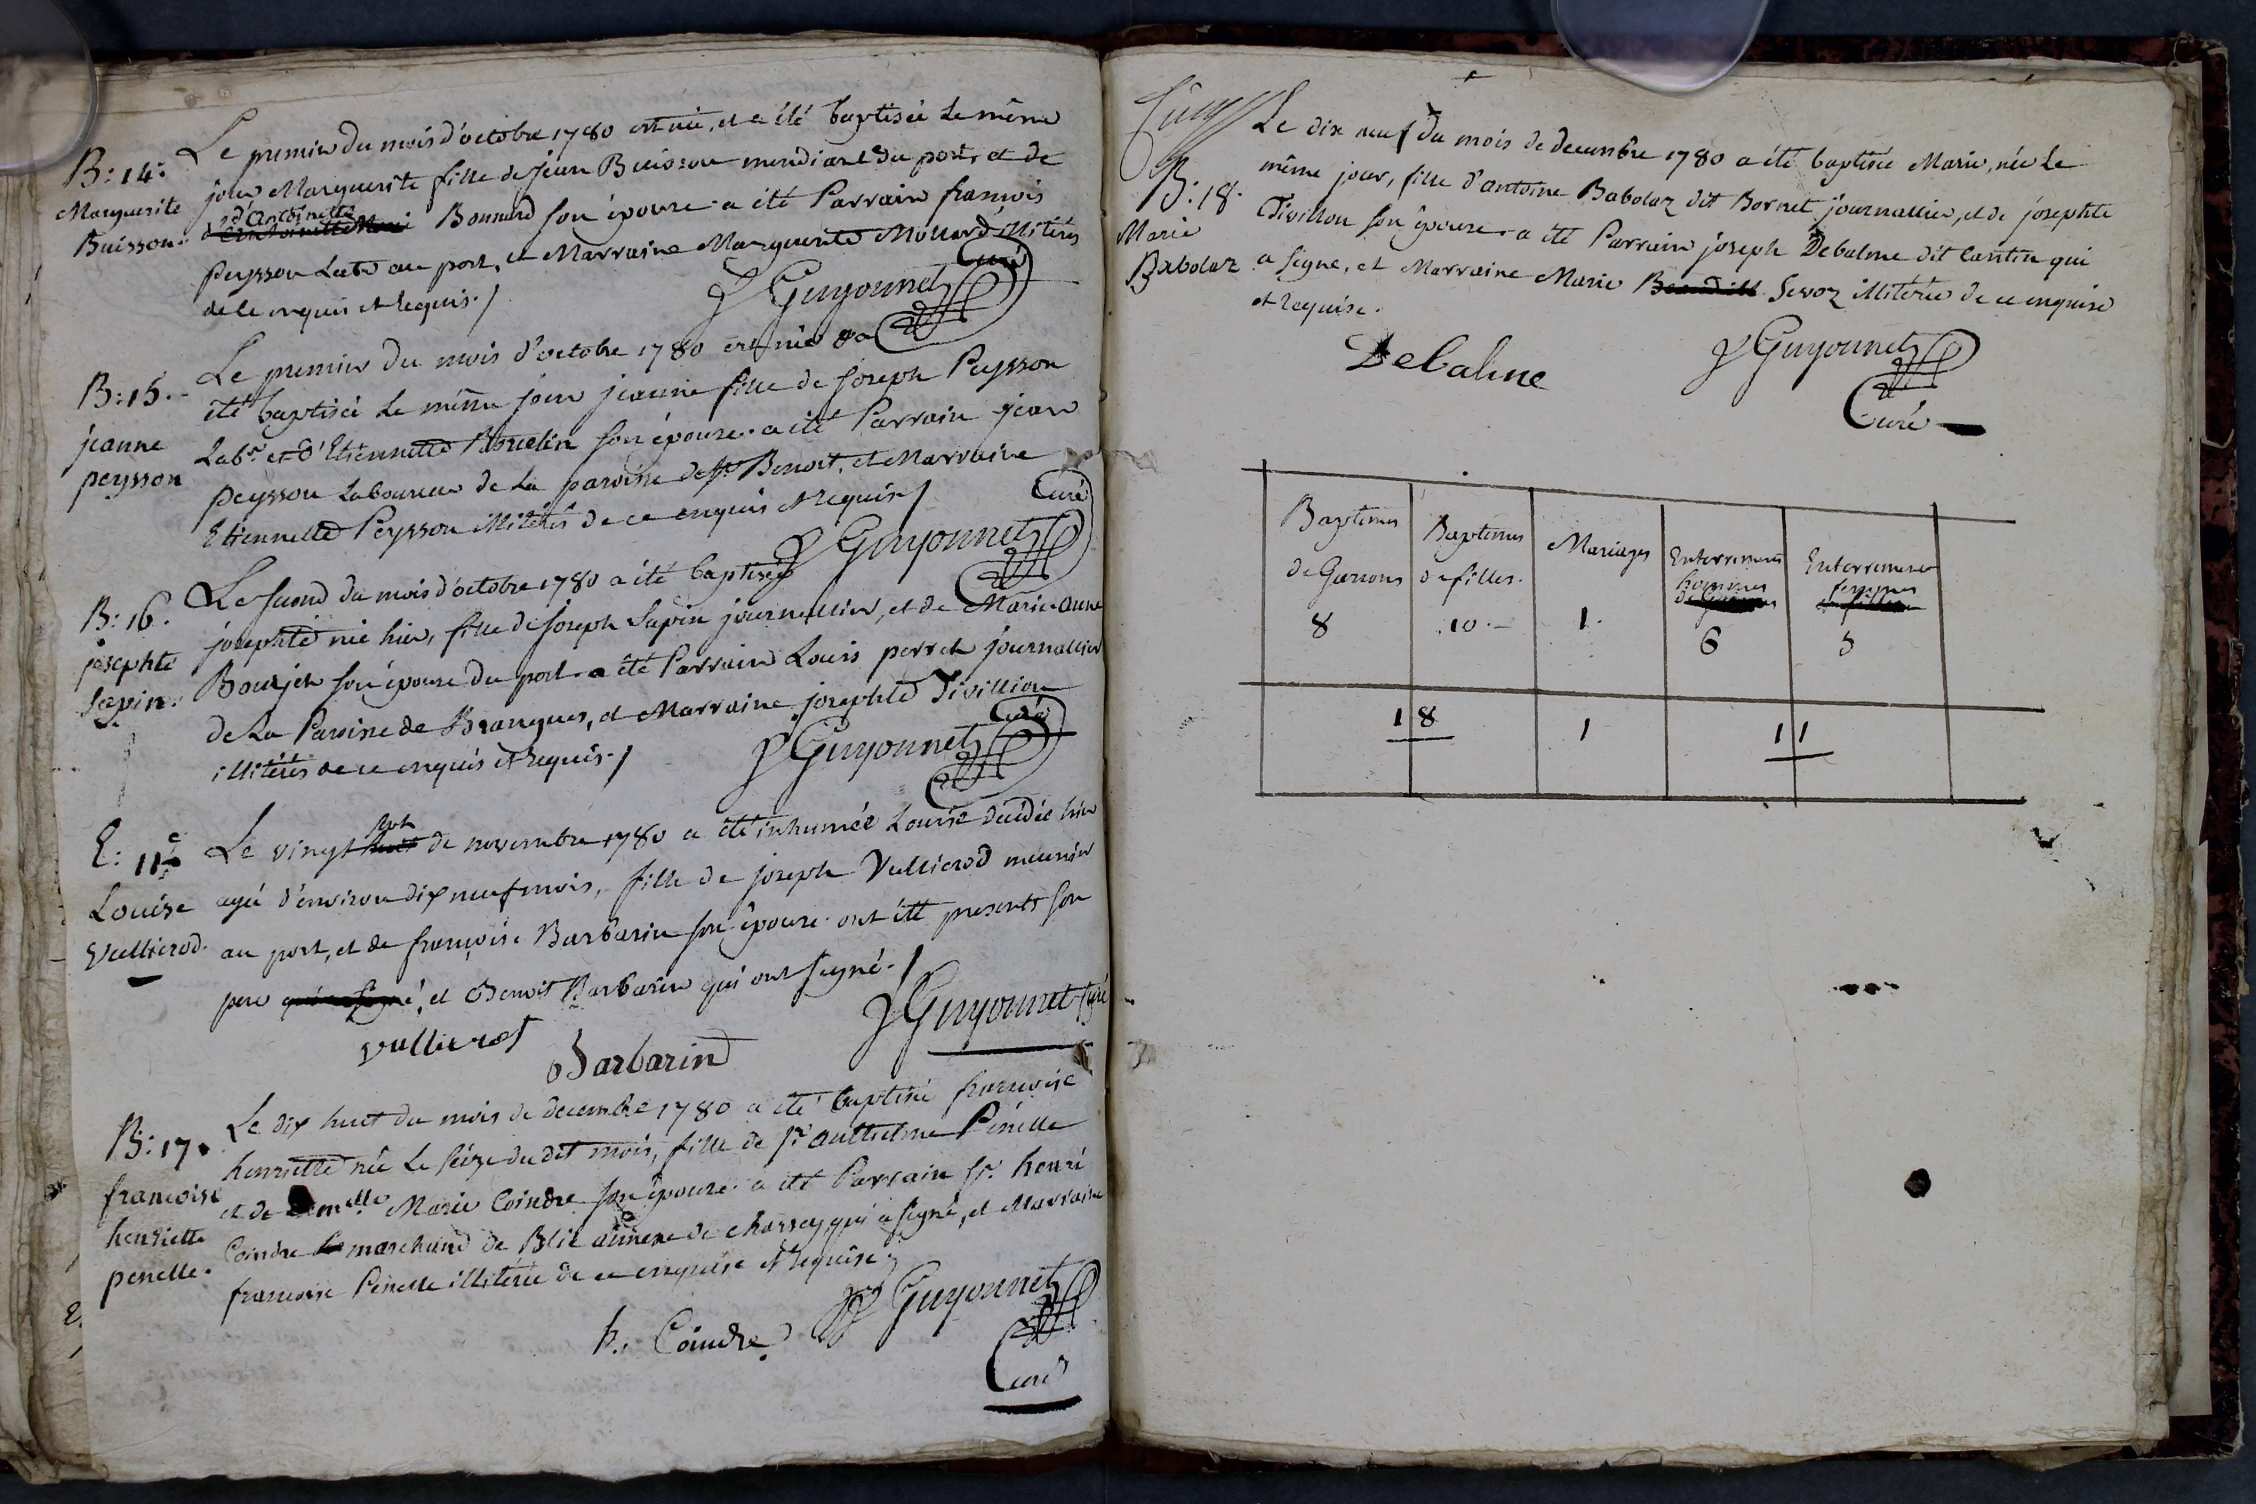 B: 14.
Marguerite
Buisson.
Le premier du mois d'octobre 1780 est née, et a été baptisée le même
jour Marguerite fille de jean Buisson mendiant du port, et de
d'antoinette
Bonnard son épouse. a été Parrain francois
peysson Labr au port, et Marraine Marguerite Mollard illiterés
de ce enquis et requis./
J Guyonnet
Curé
B: 15.
jeanne
peysson
Le premier du mois d'octobre 1780 est née et a
été baptisée le même jour jeanne fille de Joseph Peysson
Labr. et d'Etiennette son épouse. a été Parrain jean
peysson Laboureur de la paroisse de St Benoit, et Marraine
Etiennette Peysson illiterés de ce enquis et requis/
J Guyonnet
Curé
B: 16.
josephte
Sapin.
Le second du mois d'octobre 1780 a été baptisée
josephte née hier, fille de joseph Sapin journallier, et de Marie anne
Bourjeh son épouse du port. a été Parrain Louis perret journallier
de La Paroisse de Brangues, et Marraine josephte Tivillion
illiterés de ce enquis et requis./
J Guyonnet
Curé
E: 11e
Louise
Vullierod.
sept
Le vingt huit de novembre 1780 a été inhumée Louise decédée hier
agée d'environ dix neuf mois, fille de joseph Vullierod meunier
au port, et de françoise Barbarin son épouse. ont été presents son
pere qui a signé, et Benoit Barbarin qui ont signé./
J Guyonnet Curé
vullierot
Barbarin
B: 17.
francoise
henriette
penelle.
Le dix huit du mois de decembre 1780 a été baptisé francoise
henriette née le seize du dit mois, fille de Sr anthelme Penelle
et de melle Marie Coindre son épouse. a été Parrain Sr. henri
Coindre marchand de Blié annexe de charrey, qui a signé, et Marraine
francoise Penelle illiterée de ce enquise et requise./
J Guyonnet
h. Coindre
Curé
B: 18.
Marie
Babolaz
Le dix neuf du mois de decembre 1780 a été baptisée Marie, née le
même jour, fille d'antoine Babolaz dit Bornet journallier, et de josephte
Tivillion son épouse. a été Parrain joseph Debalme dit Cantin qui
a signé, et Marraine Marie Sevoz illiterée de ce enquise
et requise.
Debalme
J Guyonnet
Curé
Baptemes
de Garsons
Baptemes
de filles.
Mariages
Enterremens
hommes
Enterremens
femmes
8
10.
1.
6
5
18
1
11